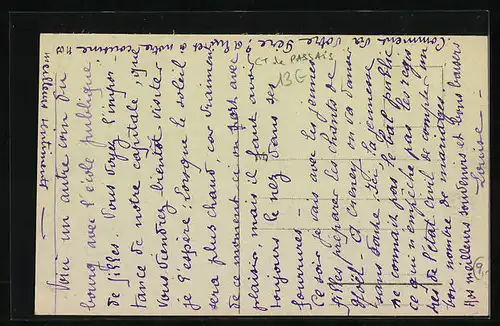 Voici un autre coin du
bourg avec l'école publique
de filles. Vous voyez l'impor-
tance de notre capitale que
vous viendrez bientôt visiter
je l'espère, lorsque le soleil
sera plus chaud, car vraiment
de ce moment ci on
plaisir, mais il faut avoir
toujours le nez dans ses
fourrures -
Ce soir je vais avec les jeunes
filles préparer les chants de
Noël - A on va danser
sans doute. Ici la jeunesse
ne connaît pas le bal public
ce qui n'empêche pas les regis-
tres de l'état civil de compter un
bon nombre de mariages.
meilleurs souvenirs et bons baisers
Louise -
Comment va votre Père ? à lui et à votre cousine nos
meilleurs sentiments -
Ct de PASSAIS
13E